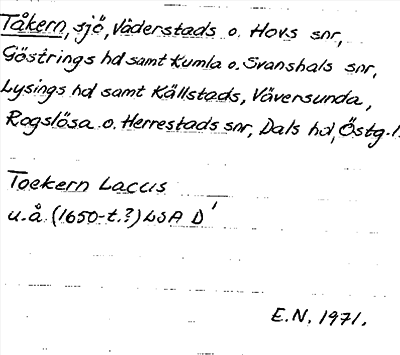 Tåkern, sjö, Väderstads o. Hovs snr,
Göstrings hd samt Kumla o. Svanshals snr,
Lysings hd samt Källstads, Väversunda,
Rogslösa o. Herrestads snr, Dals hd, Östg.l.
Toekern Laccis
u.å (1650-t.?) LSA D'
E.N. 1971.